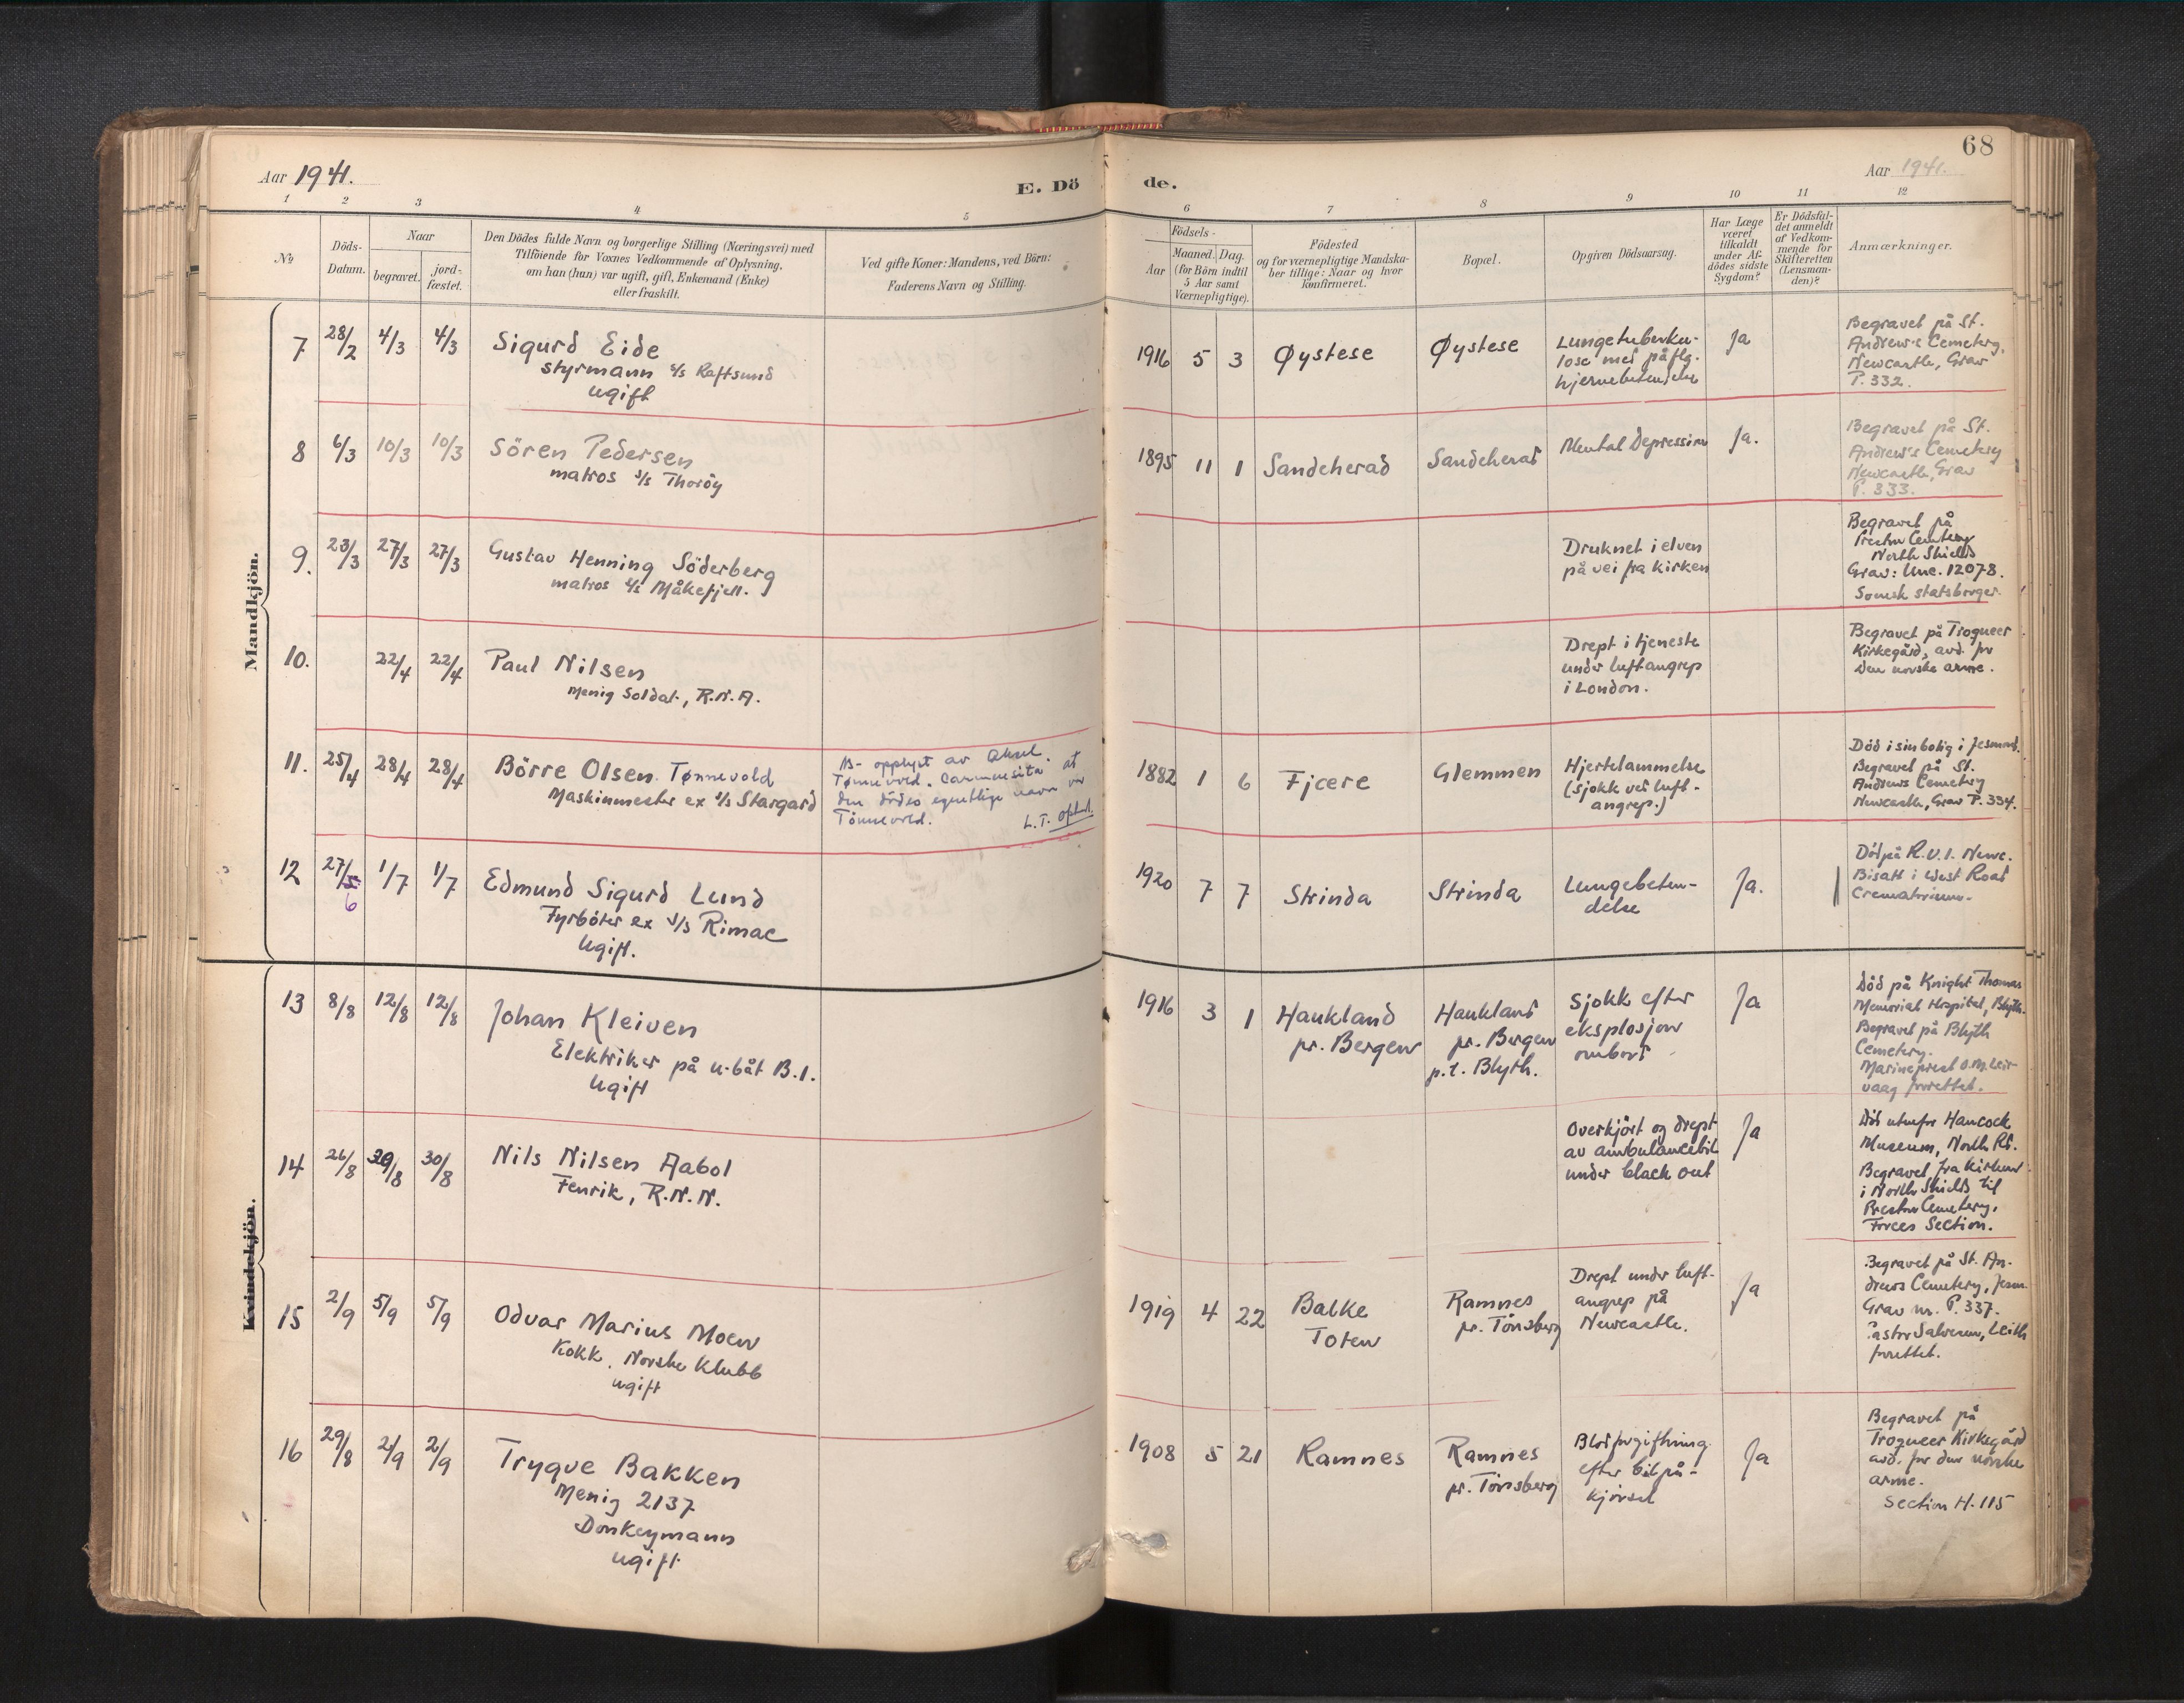 68
Aar 1941.
E. Dö
de.
Aar 1941.
1 2 3 4 5
6 7 8 9 10 11 12
No
Döds-
Datum.
Naar
begravet.
jord-
fæstet.
Den Dödes fulde Navn og borgerlige Stilling (Næringsvei) med
Tilföiende for Voxnes Vedkommende af Oplysning,
om han (hun) var ugift, gift, Enkemand (Enke)
eller fraskilt.
Ved gifte Koner: Mandens, ved Börn:
Faderens Navn og Stilling.
Födsels-
Aar
Maaned. Dag.
(for Börn indtil
5 Aar samt
Værnepligtige).
Födested
og for værnepligtige Mandska-
ber tillige: Naar og hvor
konfirmeret.
Bopæl.
Opgiven Dödsaarsag.
Har Læge
været
tilkaldt
under Af-
dödes sidste
Sygdom?
Er Dödsfal-
det anmeldt
af Vedkom-
mende for
Skifteretten
(Lensman-
den)?
Anmærkninger.
Mandkjön.
7 28/2 4/3 4/3
Sigurd Eide
styrmann s/s Raftsund
ugift
1916 5 3 Øystese Øystese
Lungetuberku-
lose med påflg.
hjernebetendelse
Ja
Begravet på St.
Andrew's Cemetery,
Newcastle, Grav
P. 332.
8 6/3 10/3 10/3
Sören Pedersen
matros s/s Thoröy
1895 11 1 Sandeherad Sandeherad
Mental Depression
Ja.
Begravet på St.
Andrew's Cemetery
Newcastle, Grav
P. 333.
9. 23/3 27/3 27/3
Gustav Henning Söderberg
matros s/s Måkefjell.
Druknet i elven
på vei fra kirken
Begravet på
Preston Cemetery
North Shields
Grav: Unc. 12078.
Svensk statsborger.
10. 22/4 22/4
Paul Nilsen
Menig Soldat, R.N.A.
Drept i tjeneste
under luftangrep
i London.
Begravet på Troqueer
Kirkegård, avd. for
den norske arme.
11. 25/4 28/4 28/4
Börre Olsen Tønnevold
Maskinmester ex s/s Stargard
opplyst av Aksel
Tønnevold. at
den dödes egentlige navn var
Tönnevold.
L.T.
1882 1 6 Fjære Glemmen
Hjertelammelse
(sjokk ved luft-
angrep.)
Död i sin bolig i Jesmond.
Begravet på St.
Andrews Cemetery
Newcastle, Grav P. 334.
12 27/5 1/7 1/7
6
Edmund Sigurd Lund
Fyrböter ex s/s Rimac
Ugift.
1920 7 7 Strinda Strinda
Lungebeten-
delse
Ja.
Död på R.V.I. Newc.
Bisatt i West Road
Crematorium.
Kvindekjön.
13 8/8 12/8 12/8
Johan Kleiven
Elektriker på u-båt B.1.
Ugift
1916 3 1
Haukland
pr. Bergen
Haukland
pr. Bergen
p.t. Blyth.
Sjokk efter
eksplosjon
ombord
Ja
Död på Knight Thomas
Memorial Hospital, Blyth.
Begravet på Blyth
Cemetery.
Marineprest O.M. Leir-
vaag forrettet.
14 26/8 30/8 30/8
Nils Nilsen Aabol
Fenrik, R.N.N.
Overkjört og drept
av ambulancebil
under black out
Ja
Död utenfor Hancock
Museum, North Rd.
Begravet fra kirken
i North Shields til
Preston Cemetery,
Forces Section.
15 2/9 5/9 5/9
Odvar Marius Moen
Kokk, Norske Klubb
ugift
1919 4 22
Balke
Toten
Ramnes
pr. Tönsberg
Drept under luft-
angrep på
Newcastle.
Ja
Begravet på St. An-
drews Cemetery, Jesm.
Grav nr. P. 337.
Pastor Salvesen, Leith
forrettet.
16 29/8 2/9 2/9
Trygve Bakken
Menig 2137
Donkeymann
ugift
1908 5 21 Ramnes
Ramnes
pr. Tönsberg
Blodforgiftning
efter bilpå-
kjörsel
Ja
Begravet på
Troqueer Kirkegård
avd. for den norske
arme.
Section H. 115